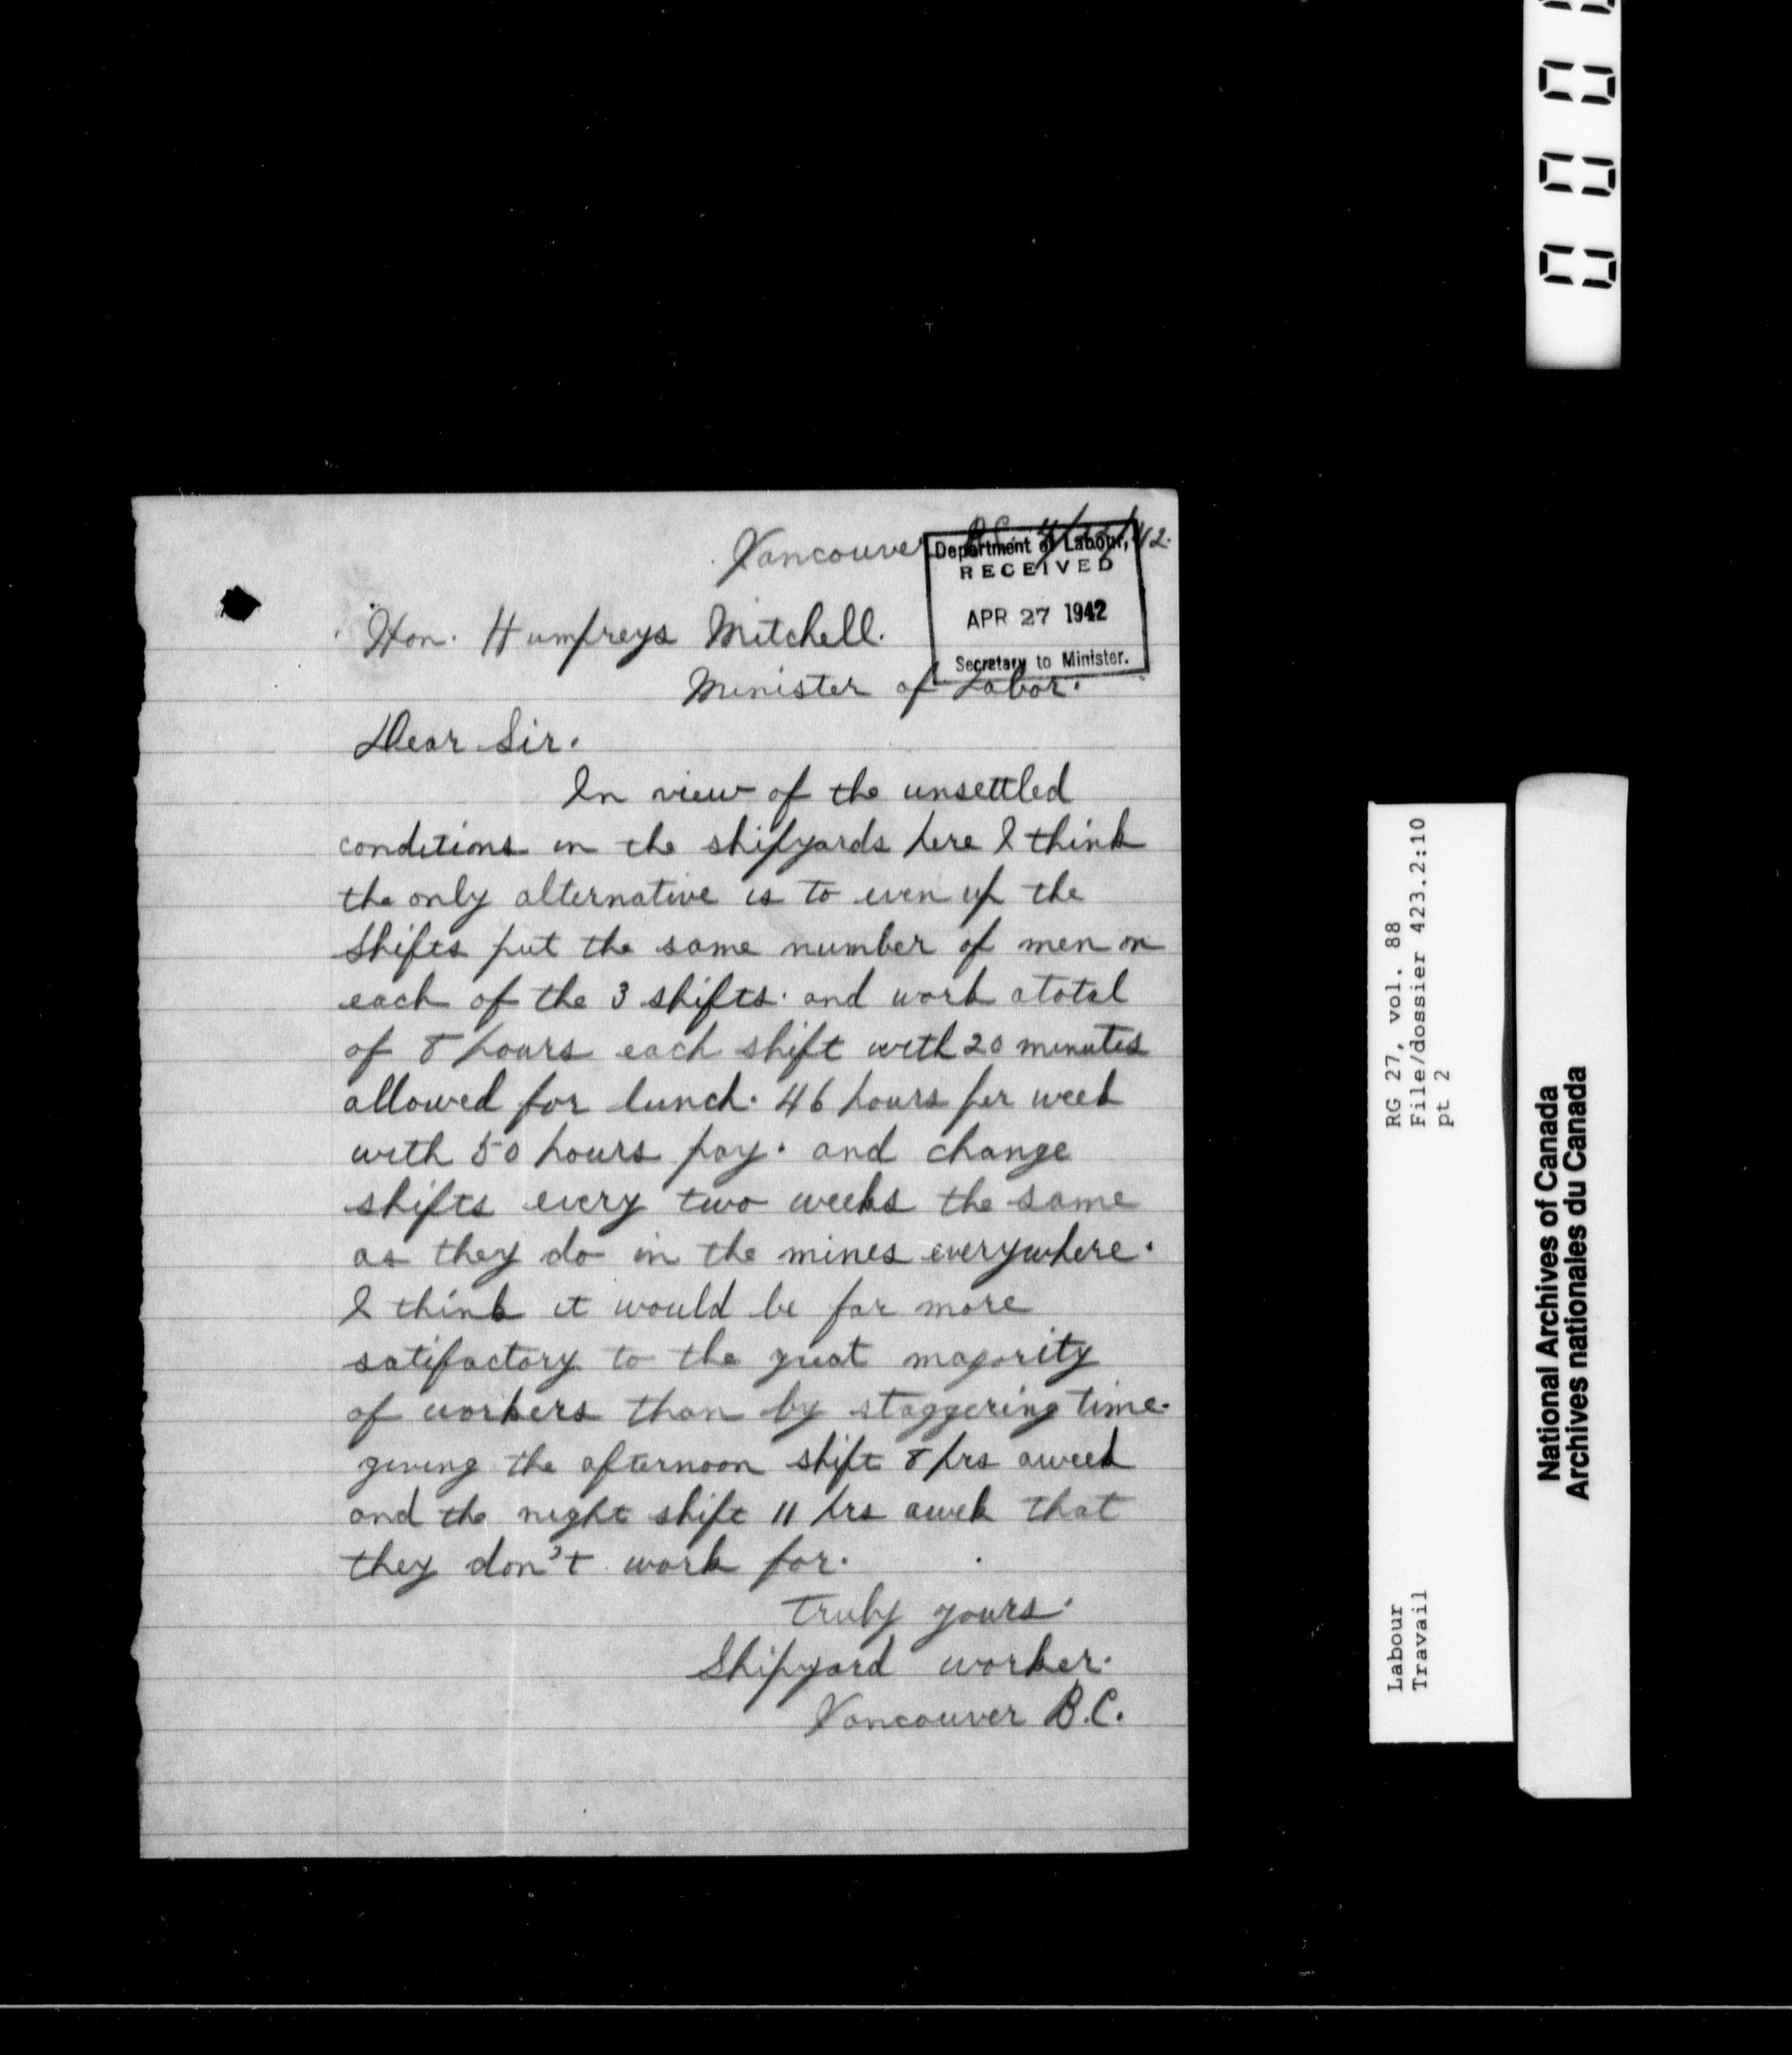 Vancouver B.C. 4/23/42.
Department of Labour,
RECEIVED
APR 27 1942
Secretary to Minister.
Hon. Humfreys Mitchell.
Minister of Labor.
Dear Sir.
In view of the unsettled
conditions in the shipyards here I think
the only alternative is to even up the
Shifts put the same number of men on
each of the 3 shifts. and work atotal
of 8 hours each shift with 20 minutes
allowed for lunch. 46 hours per week
with 50 hours pay. and change
shifts every two weeks the same
as they do in the mines everywhere.
I think it would be far more
satifactory to the great magority
of workers than by staggering time.
giving the afternoon shift 8 hrs aweek
and the night shift 11 hrs awek that
they don't work for.
Truly yours.
Shipyard worker.
Vancouver B.C.
RG 27, vol. 88
File/dossier 423.2:10
pt 2
Labour
Travail
National Archives of Canada
Archives nationales du Canada